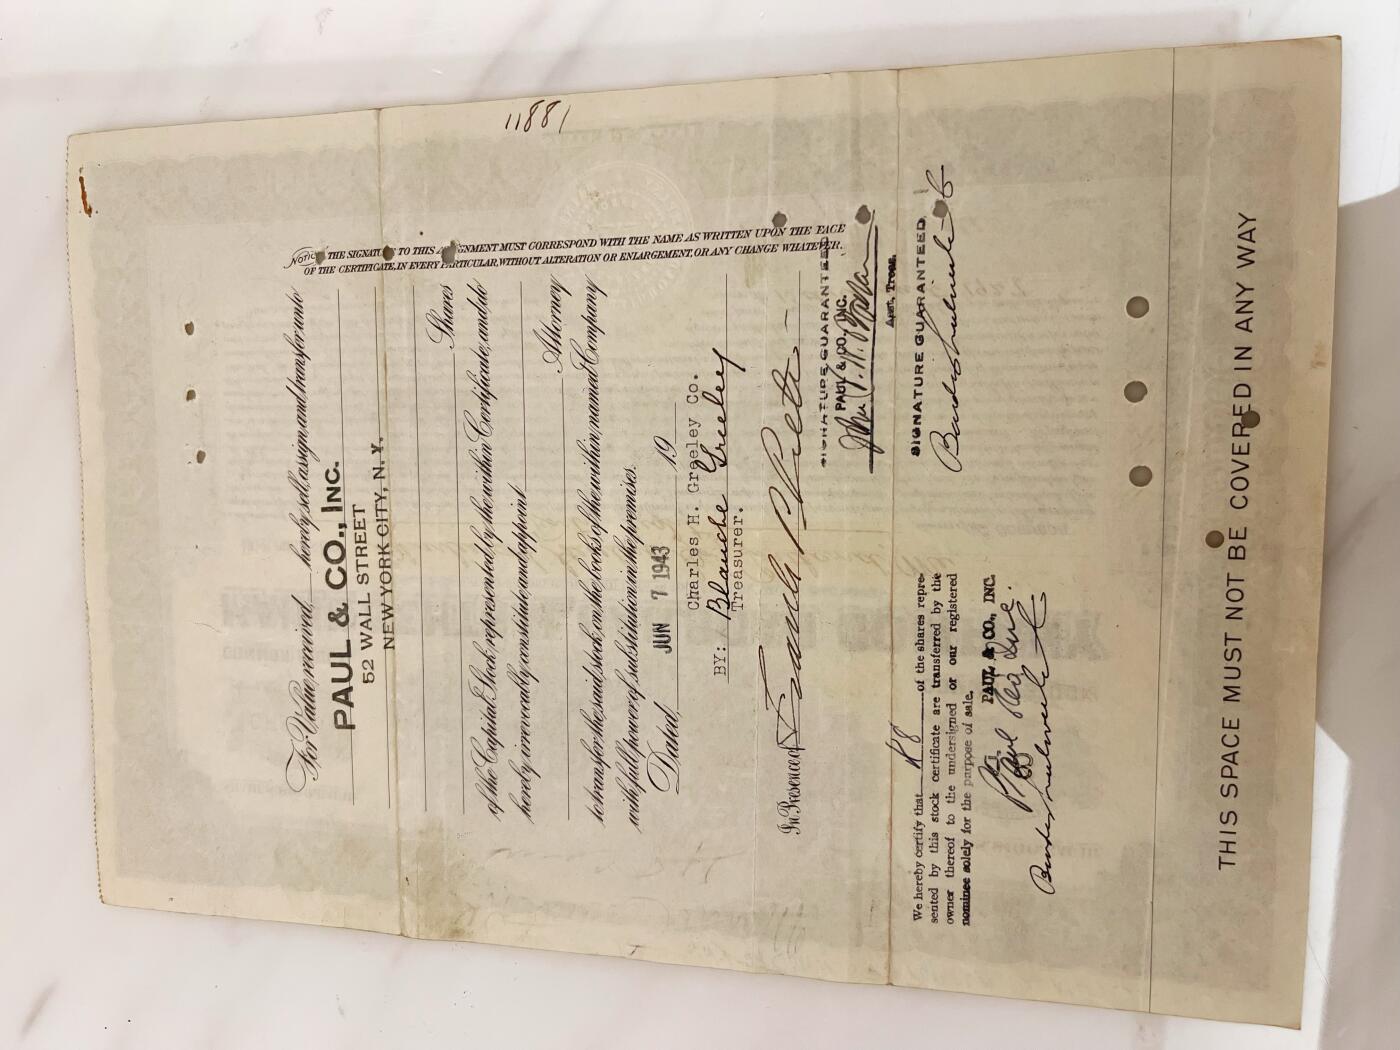 11881
For Value received, hereby sell, assign and transfer unto
PAUL & CO., INC.
52 WALL STREET
NEW YORK CITY, N. Y.
Shares
of the Capital Stock represented by the within Certificate, and do
hereby irrevocably constitute and appoint
Attorney
to transfer the said stock on the books of the within named Company
with full power of substitution in the premises.
Dated, JUN 7 1943 19
Charles H. Greeley Co.
BY: Blanche Greeley
Treasurer.
In Presence of
NOTICE THE SIGNATURE TO THIS ASSIGNMENT MUST CORRESPOND WITH THE NAME AS WRITTEN UPON THE FACE
OF THE CERTIFICATE, IN EVERY PARTICULAR, WITHOUT ALTERATION OR ENLARGEMENT, OR ANY CHANGE WHATEVER.
SIGNATURE GUARANTEED
PAUL & CO., INC.
Asst. Treas.
SIGNATURE GUARANTEED
We hereby certify that of the shares repre-
sented by this stock certificate are transferred by the
owner thereof to the undersigned or our registered
nominee solely for the purpose of sale.
PAUL & CO., INC.
THIS SPACE MUST NOT BE COVERED IN ANY WAY